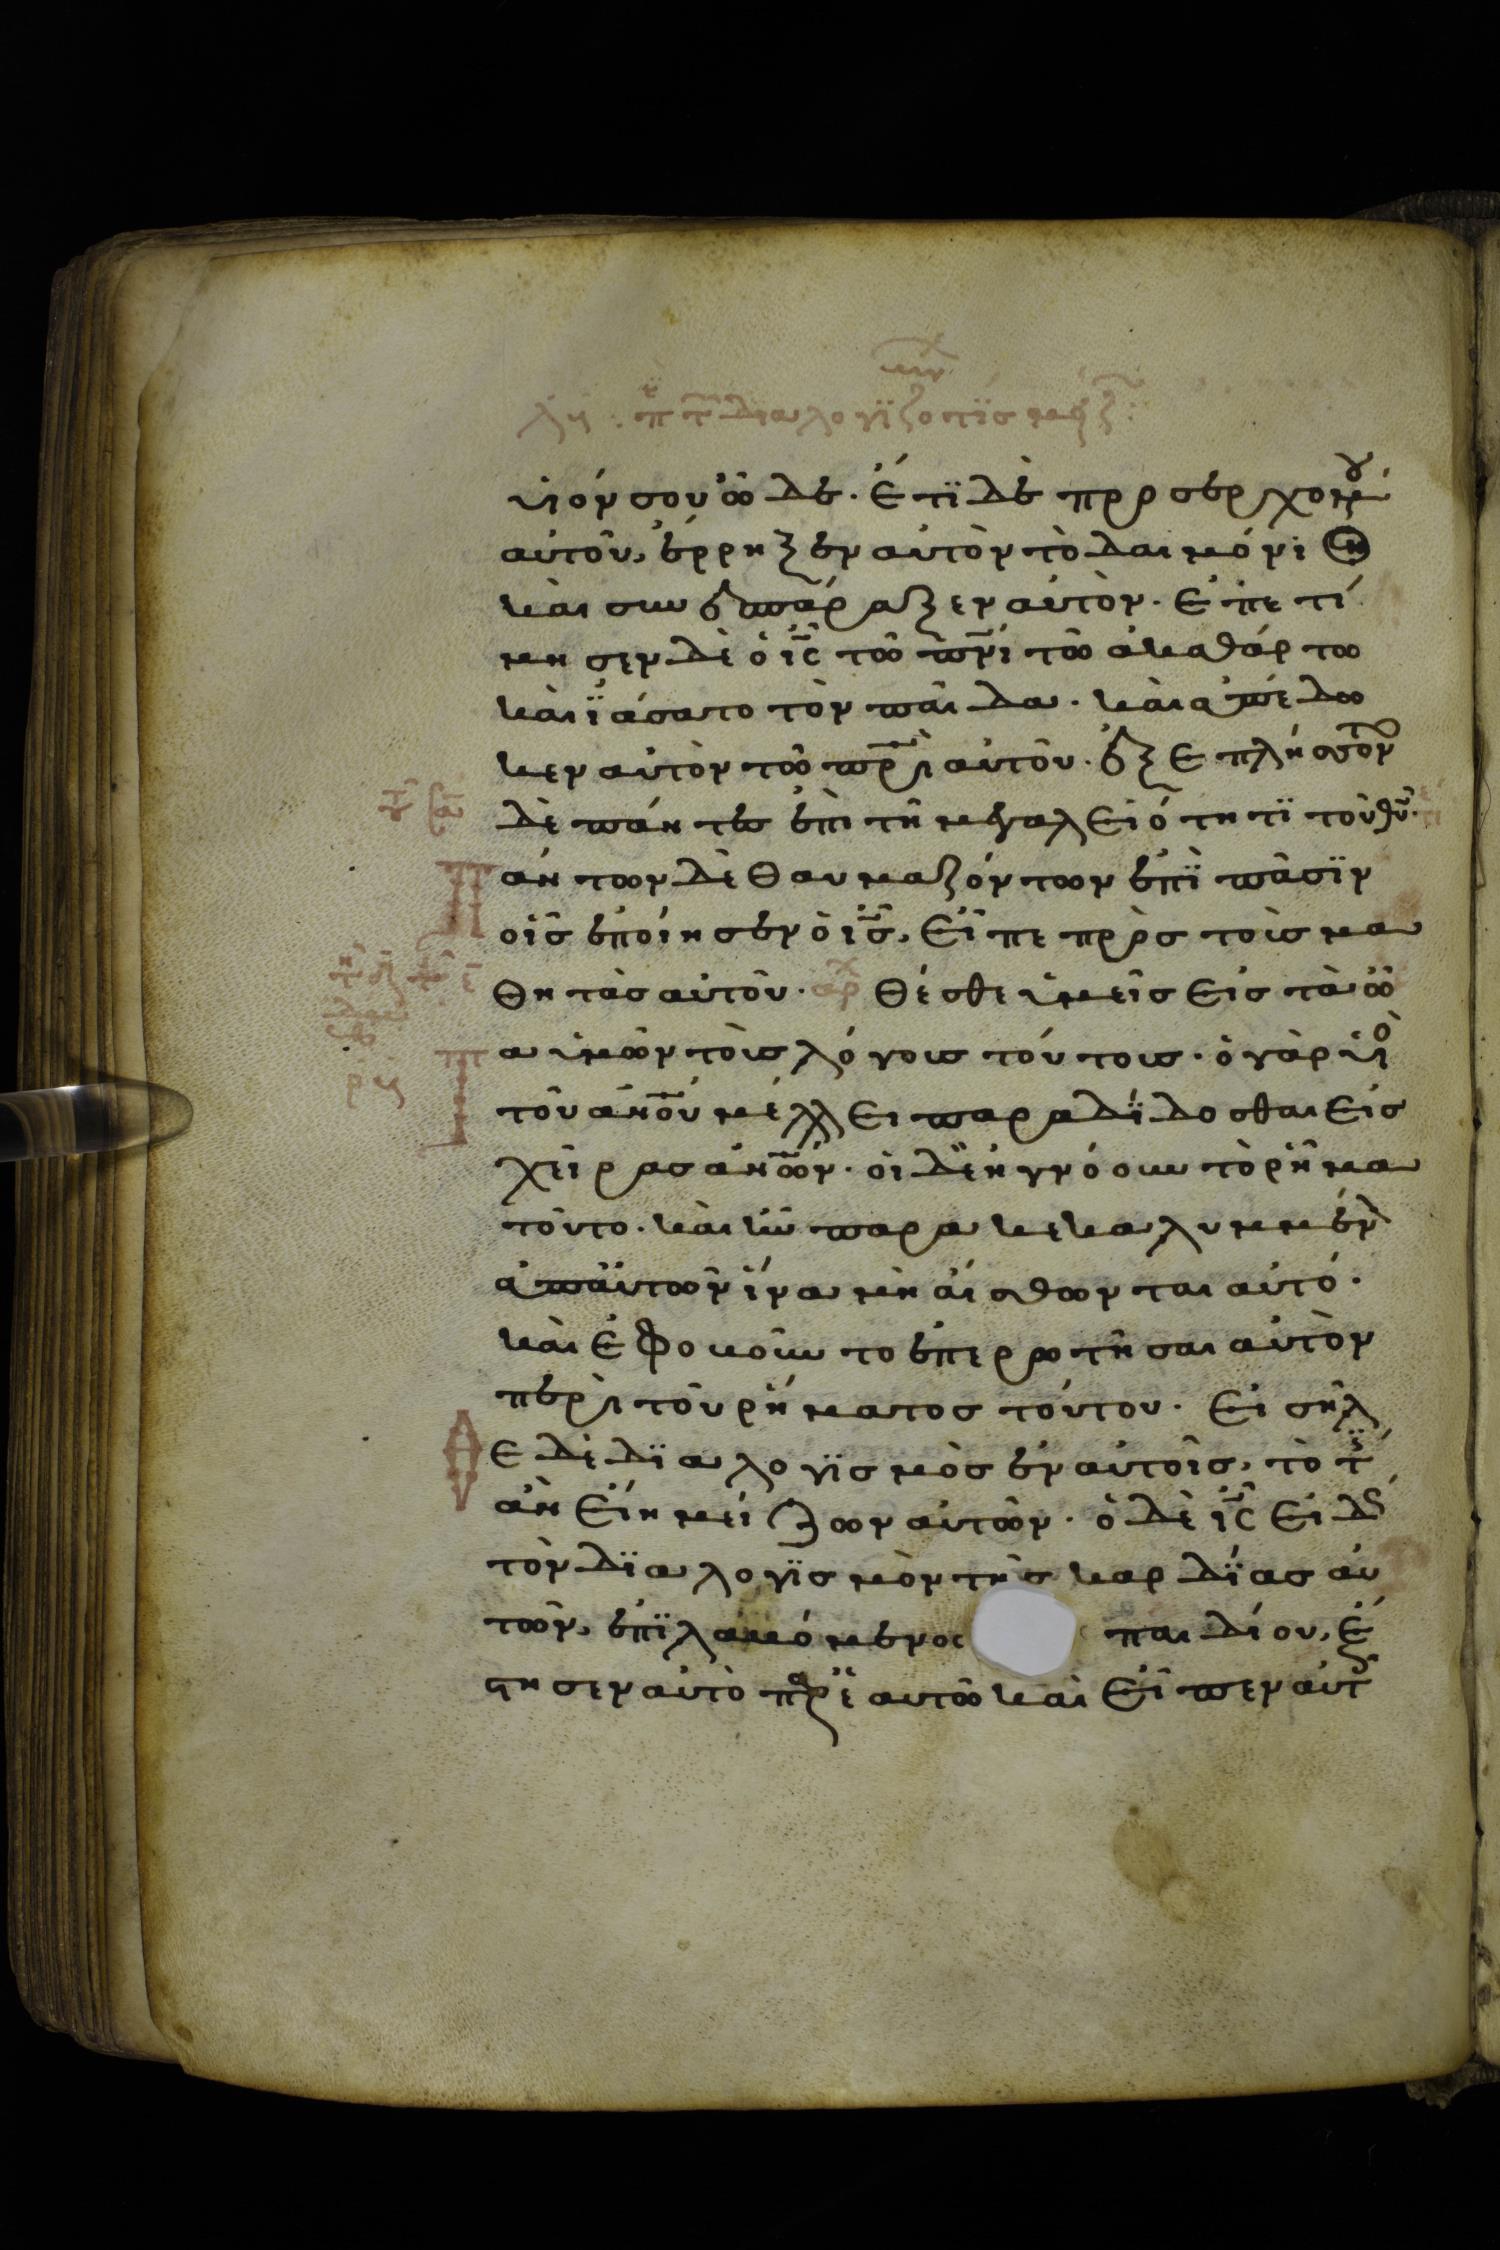 υἱόν σου ὧδε. Ἔτι δὲ προσερχομένου
αὐτοῦ, ἔρρηξεν αὐτὸν τὸ δαιμόνιον
καὶ συνεσπάραξεν αὐτόν. Ἐπετί
μησεν δὲ ὁ ις τῶ πνι τῶ ἀκαθάρτω
καὶ ϊάσατο τὸν παῖδα. καὶ ἀπέδω
κεν αὐτὸν τῶ πρι αὐτοῦ. ἐξεπλήσσοντο
δὲ πάντες ἐπὶ τῆ μεγαλειότητι τοῦ θυ.
Πάντων δὲ θαυμαζόντων ἐπὶ πᾶσϊν
οἷς ἐποίησεν ὁ ις, εἶπε πρὸς τοὺς μα
θητὰς αὐτοῦ. Θέσθε ὑμεῖς εἰς τὰ ὦ
τα ὑμῶν τοὺς λόγους τούτους. ὁ γὰρ υἱὸς
τοῦ ανου μέλλει παραδίδοσθαι εἰς
χεῖρας ανων. οἱ δὲ ἠγνόουν τὸ ῥῆμα
τοῦτο. καὶ ἦν παρακεκαλυμμένον
ἀπ' αὐτῶν ἵνα μὴ αἴσθωνται αὐτό.
καὶ ἐφοβοῦντο ἐπερωτῆσαι αὐτὸν
περὶ τοῦ ῥήματος τούτου. Εἰσῆλ
θε δὲ διαλογϊσμὸς ἐν αὐτοῖς, τὸ τίς
ἂν εἴη μείζων αὐτῶν. ὁ δὲ ις εἰδὼς
τὸν διαλογϊσμὸν τῆς καρδίας αὐ
τῶν, ἐπϊλαβόμενος παιδίου, ἔ
στησεν αὐτὸ παρ' ἑαυτῶ καὶ εἶπεν αὐτοῖς